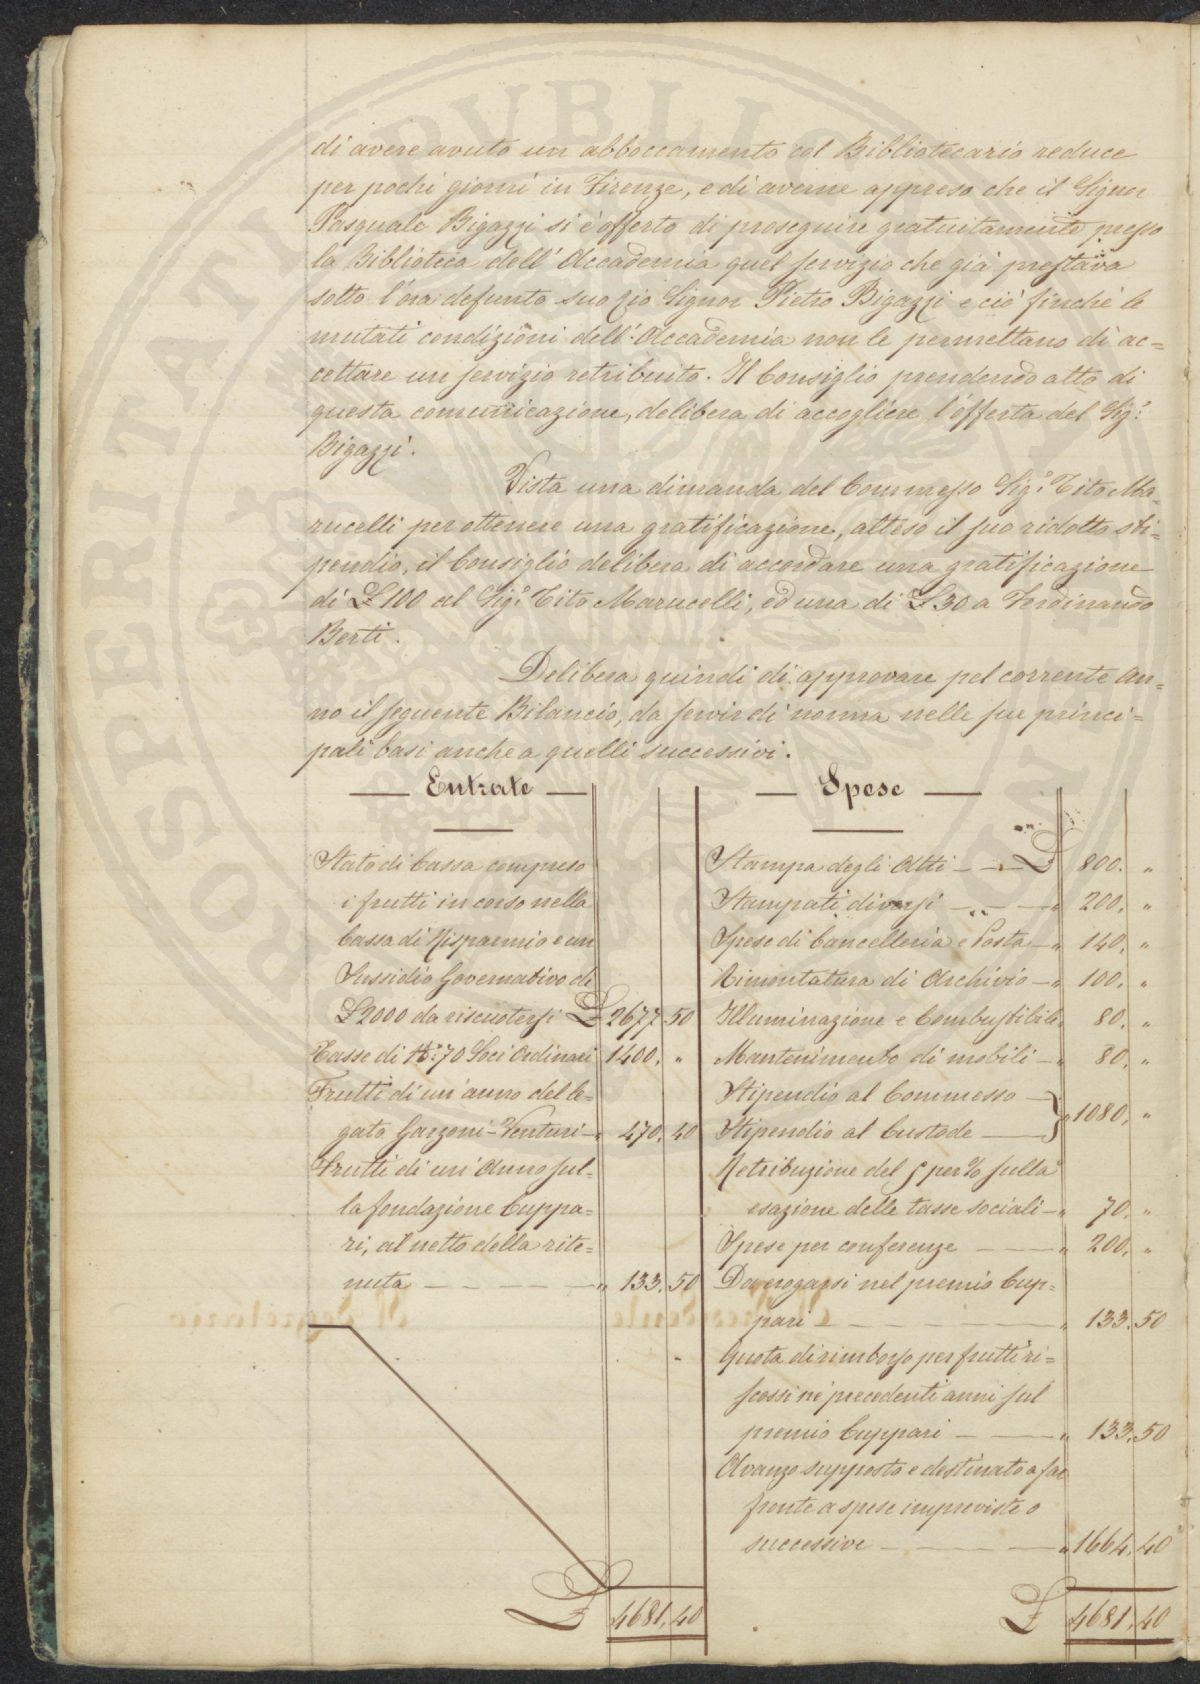 di avere avuto un abboccamento col Bibliotecario reduce
per pochi giorni in Firenze, e di averne appreso che il Signor
Pasquale Bigazzi si è offerto di proseguire gratuitamente presso
la Biblioteca dell'Accademia quel servizio che già prestava
sotto l'ora defunto suo zio Signor Pietro Bigazzi e ciò finchè le
mutati condizioni dell'Accademia non le permettano di ac=
cettare un servizio retribuito. Il Consiglio prendendo atto di
questa comunicazione, delibera di accogliere l'offerta del Sig.r
Bigazzi.
Vista una dimanda del Commesso Sig.r Tito Ma-
rucelli per ottenere una gratificazione, atteso il suo ridotto sti=
pendio, il Consiglio delibera di accordare una gratificazione
di £ 100 al Sig.r Tito Marucelli, ed una di £ 30 a Ferdinando
Berti.
Delibera quindi di approvare pel corrente An=
no il seguente Bilancio, da servir di norma nelle sue princi=
pali basi anche a quelli successivi.
Entrate
Stato di Cassa compreso
i frutti in corso nella
Cassa di Risparmio e un
Sussidio Governativo di
£ 2000 da riscuotersi £ 2677,50
Tasse di N.º 70 Soci Ordinari 1400. "
Frutti di un'anno del le=
gato Garzoni-Venturi - " 470,40
Frutti di un'Anno sul=
la fondazione Cuppa=
ri, al netto della rite=
nuta - - - - - " 133.50
£ 4681,40
Spese
Stampa degli Atti - - - £ 800. "
Stampati diversi - - - " 200. "
Spese di Cancelleria e Posta - " 140. "
Rimontatura di Archivio - " 100. "
Illuminazione e Combustibile " 80. "
Mantenimento di mobili - " 80. "
Stipendio al Commesso -
Stipendio al Custode - } " 1080. "
Retribuzione del 5 per % sulla
esazione delle tasse sociali - " 70. "
Spese per conferenze - - " 200. "
Da erogarsi nel premio Cup=
pari - - - - - - " 133.50
Quota di rimborso per frutti ri=
scossi ne' precedenti anni sul
premio Cuppari - - - " 133.50
Avanzo supposto e destinato a far
fronte a spese impreviste o
successive - - - - - " 1664.40
£ 4681,40